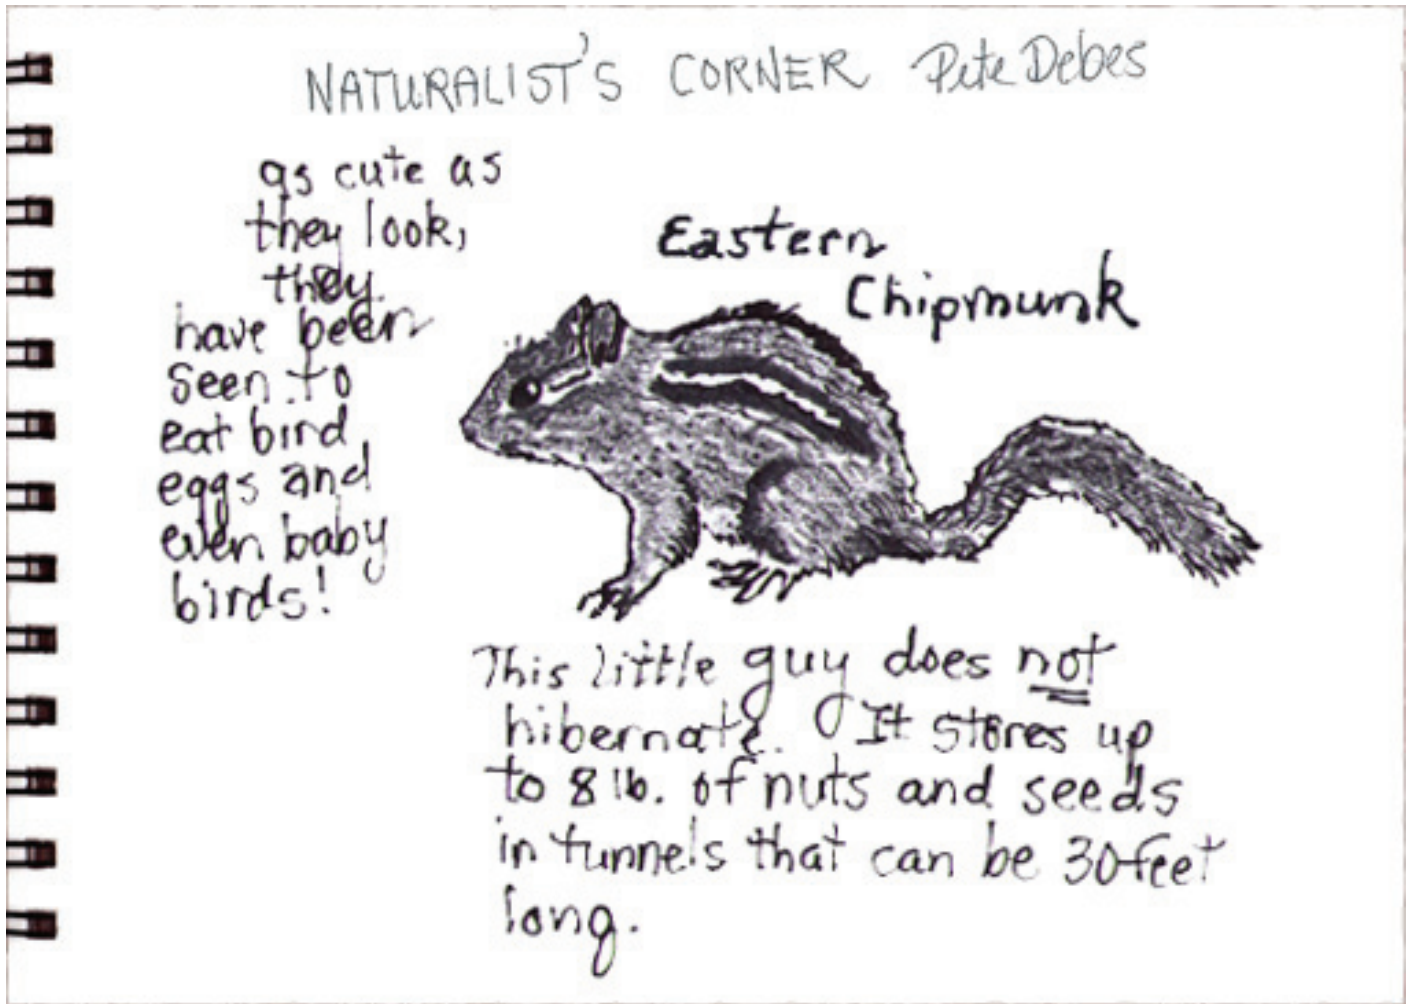 NATURALIST'S CORNER Pete Debes
as cute as
they look,
they
have been
seen to
eat bird
eggs and
even baby
birds!
Eastern
Chipmunk
This little guy does not
hibernate. It stores up
to 8 lb. of nuts and seeds
in tunnels that can be 30 feet
long.